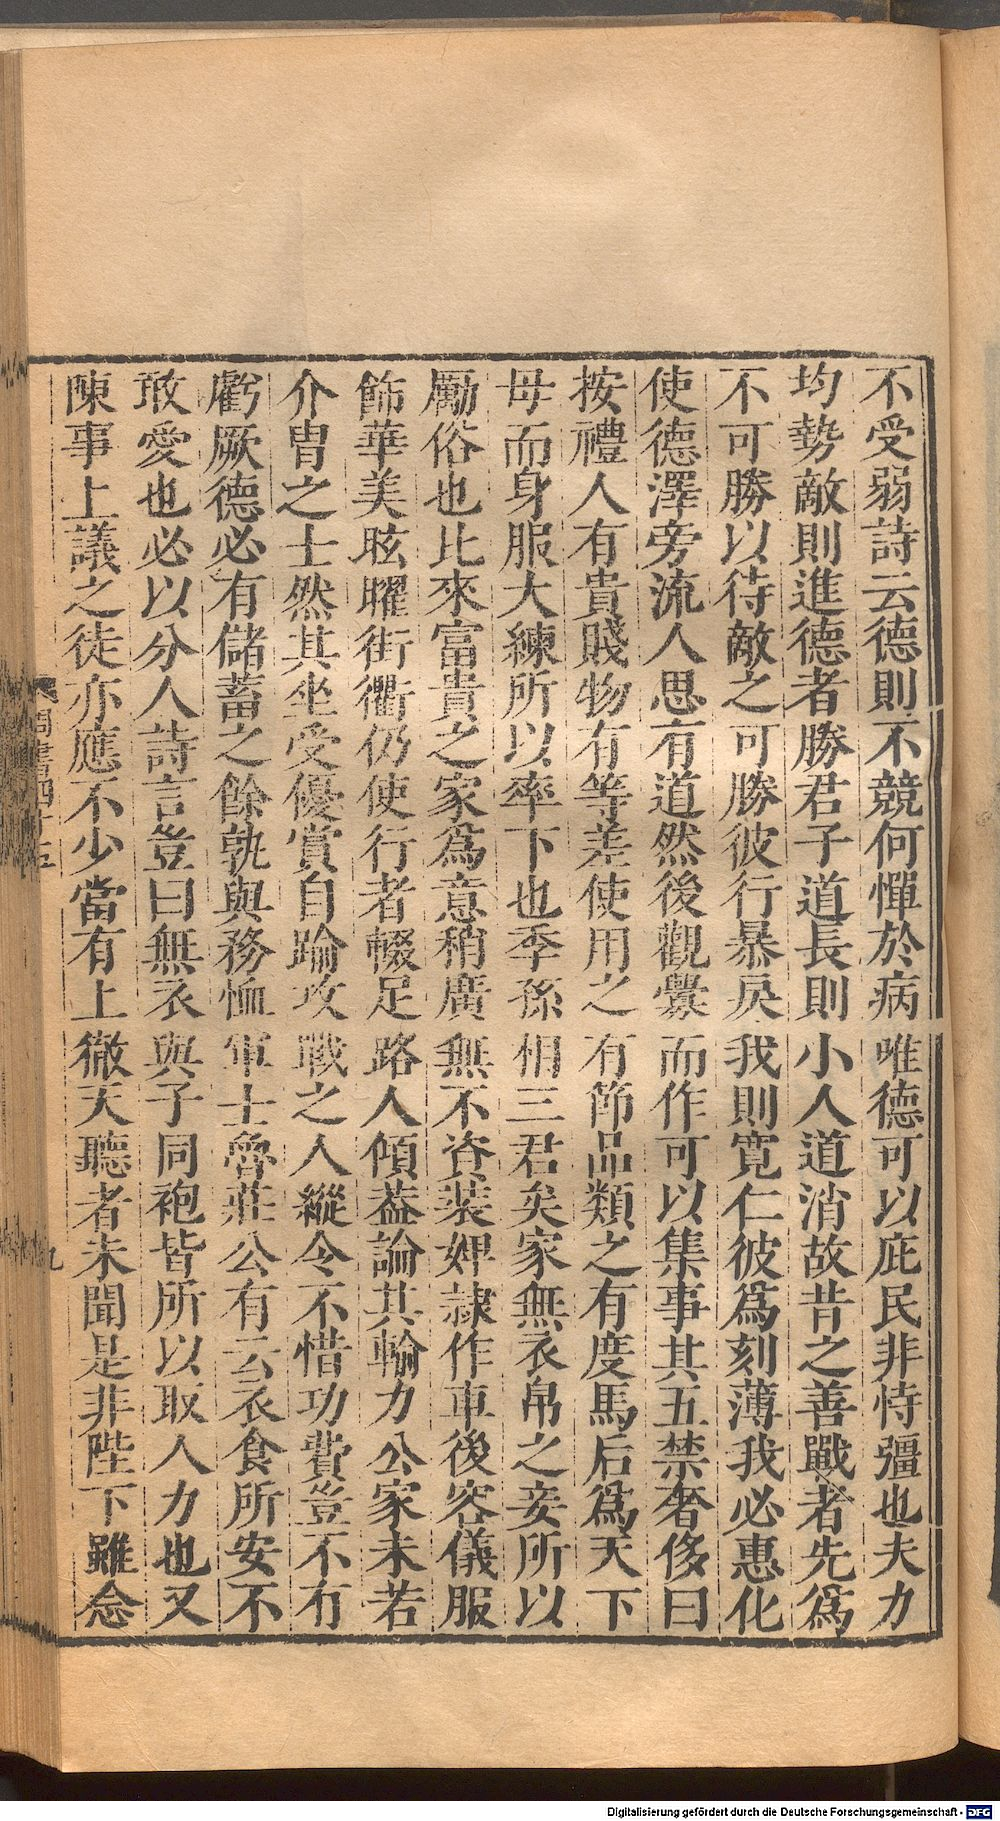 不受弱詩云德則不競何憚於病唯德可以庇民非恃彊也夫力
均勢敵則進德者勝君子道長則小人道消故昔之善戰者先爲
不可勝以待敵之可勝彼行暴戾我則寬仁彼爲刻薄我必惠化
使德澤旁流人思有道然後觀釁而作可以集事其五禁奢侈曰
按禮人有貴賤物有等差使用之有節品類之有度馬后爲天下
母而身服大練所以率下也季孫相三君矣家無衣帛之妾所以
勵俗也比來富貴之家爲意稍廣無不資裝婢隷作車後容儀服
飾華美眩曜街衢仍使行者輟足路人傾葢論其輸力公家未若
介冑之士然其坐受優賞自踰攻戰之人縱令不惜功費豈不有
虧厥德必有儲蓄之餘孰與務恤軍士魯莊公有云衣食所安不
敢愛也必以分人詩言豈曰無衣與子同袍皆所以取人力也又
陳事上議之徒亦應不少當有上徹天聽者未聞是非陛下雖念
周書四十五
九
Digitalisierung gefördert durch die Deutsche Forschungsgemeinschaft - DFG